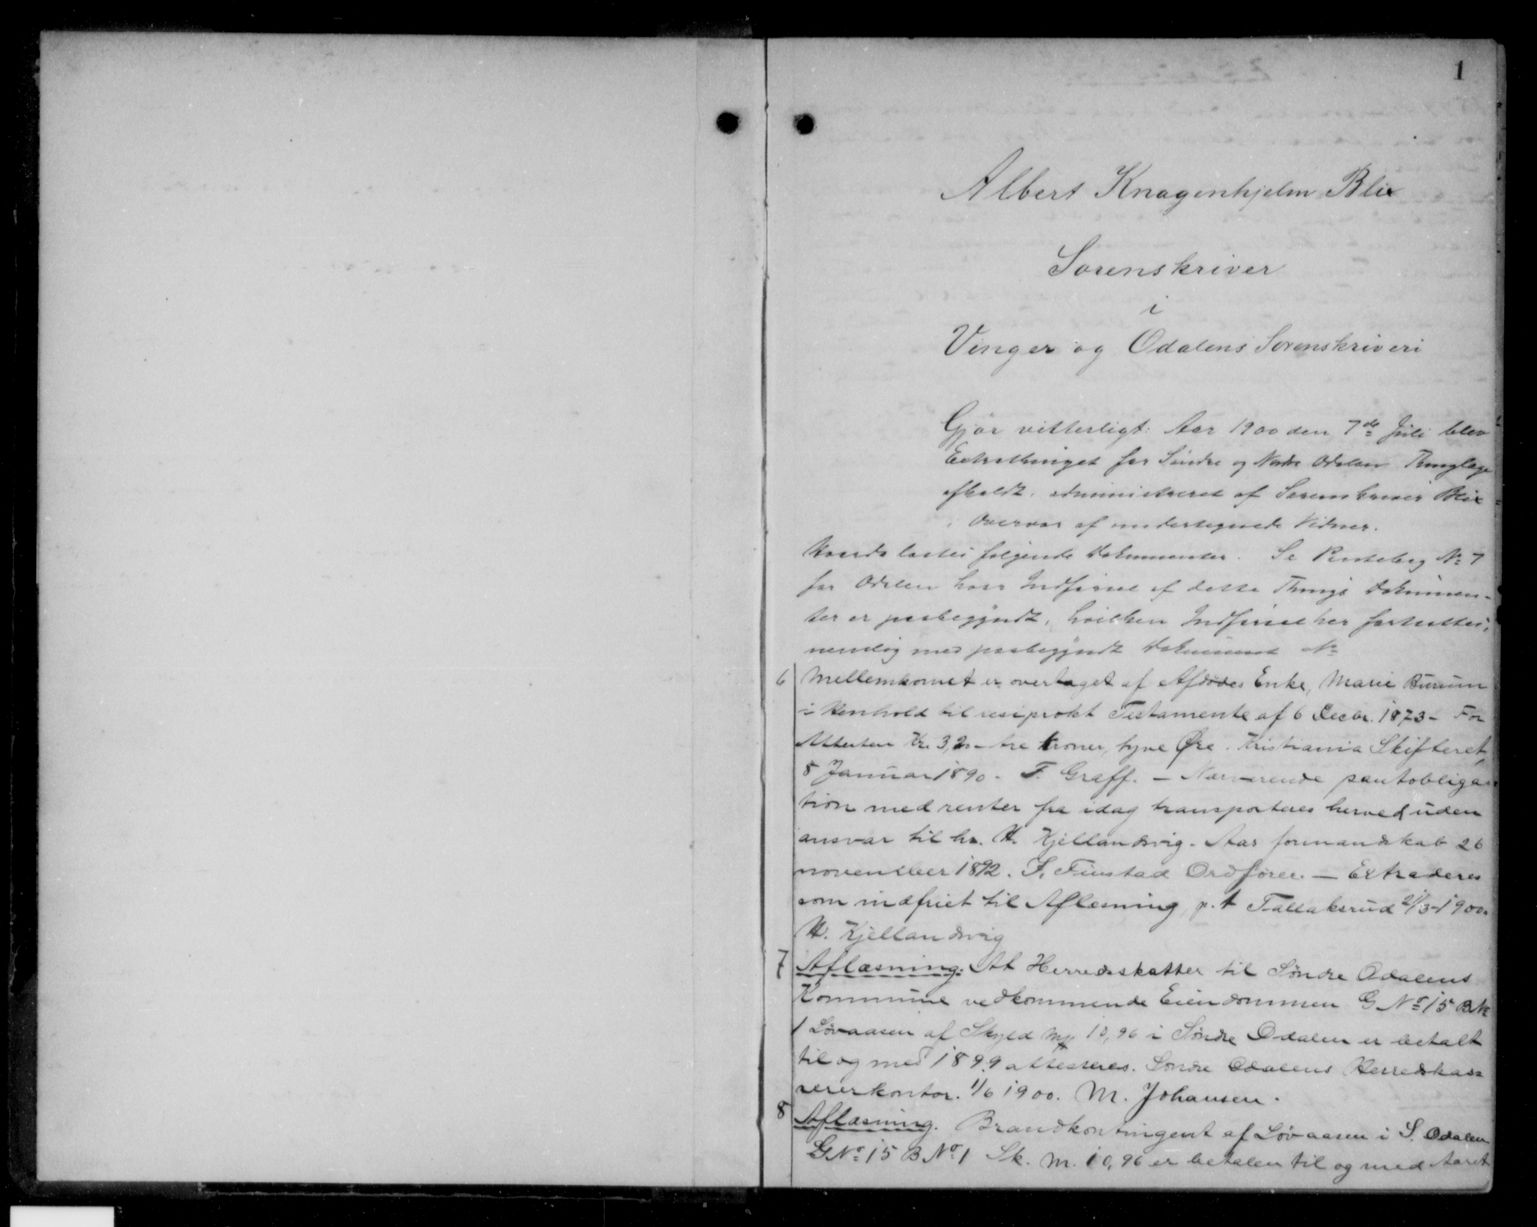 1
Albert Knagenhjelm Blix
Sorenskriver
i
Vinger og Odalens Sorenskriveri
Gjør vitterligt: Aar 1900 den 7de Juli blev
Extrathinget for Søndre og Nordre Odalen Thinglag
afholdt, administreret af Sorenskriver Blix
i Overvær af undertegnede Vidner.
Hvorda læstes følgende Dokumenter. Se Pantebog No 7
for Odalen hvor Indførsel af dette Things Dokumen-
ter er paabegyndt, hvilken Indførsel her fortsættes,
nemlig med paabegyndt Dokument No
6 Mellemkomet er overtaget af Afdødes Enke, Marie Burum
i Henhold til resiprokt Testamente af 6 Decbr. 1873 - For
Attesten Kr. 3,20 - tre kroner, tyve Øre. Kristiania Skifteret,
8 Januar 1890 - F. Graff. - Nærværende pantobliga-
tion med renter fra idag transporteres herved uden
ansvar til hr. H. Kjellandvig. Aas formandskab 26
november 1892. S. Finstad Ordfører. - Extraderes
som indfriet til Aflæsning, p.t Tallaksrud 21/3-1900.
H. Kjellandvig
7 Aflæsning: At Herredsskatter til Søndre Odalens
Kommune vedkommende Eiendommen G No 15 B No
1 Løvaasen af Skyld Mk 10,96 i Søndre Odalen er betalt
til og med 1899 attesteres. Søndre Odalens Herredskas-
sererkontor. 1/6 1900. M. Johansen.
8 Aflæsning. Brandkontingent af Løvaasen i S. Odalen
G No 15 B No 1 Sk. M. 10,96 er betalen til og med Aaret